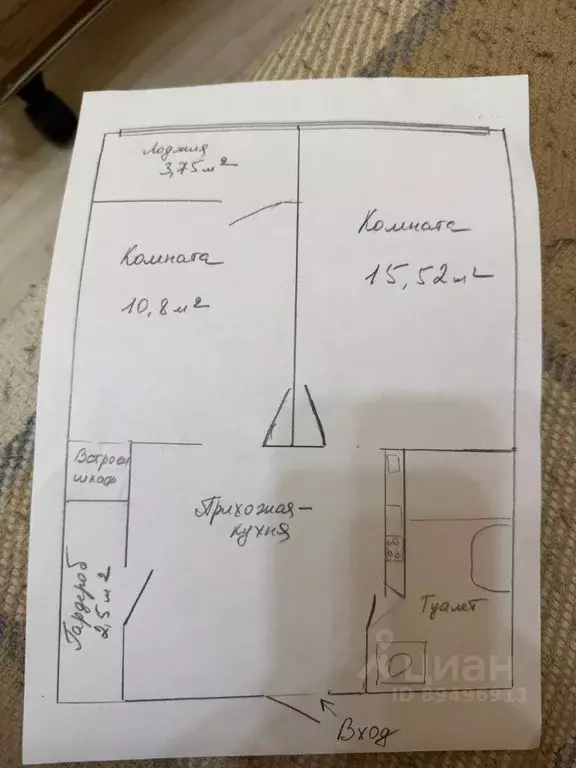 Лоджия
3,75 м2
Комната
15,52 м2
Комната
10,8 м2
Встроен
шкаф
Прихожая-
кухня
Гардероб
2,5 м2
Туалет
Вход
циан
ID 89496911